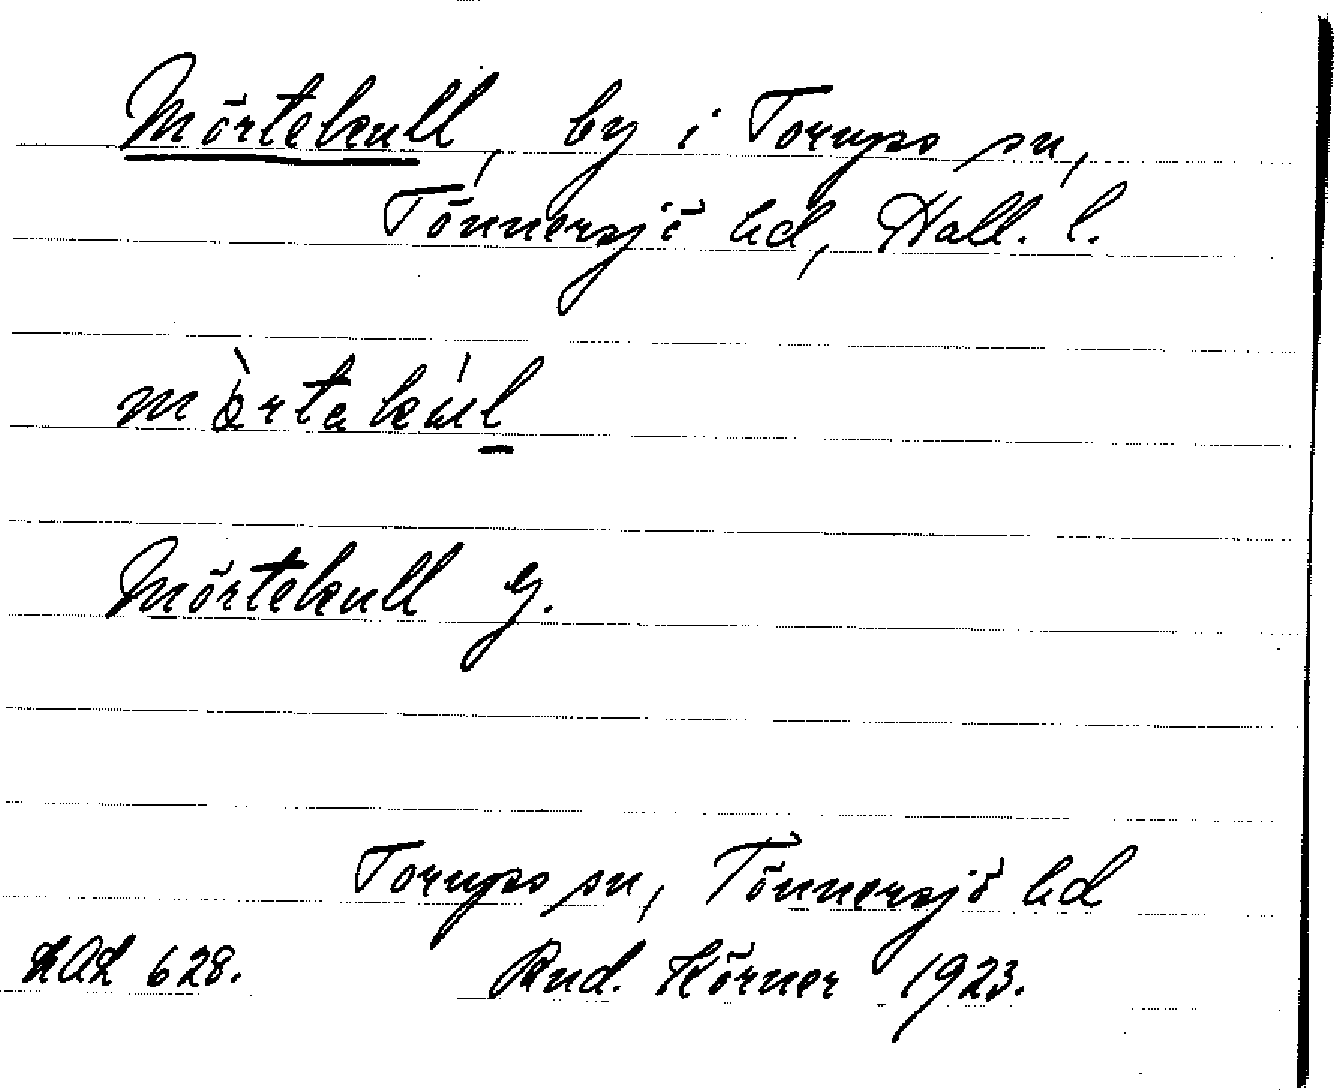 Mörtekull, by i Torups sn,
Tönnersjö hd, Hall. l.
mö̀rtakúl
Mörtekull g.
Torups sn, Tönnersjö hd
LAL 628. Rud. Körner 1923.